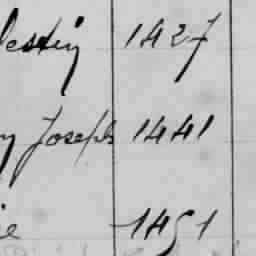 lestin 1427
y Joseph 1441
ie 1451